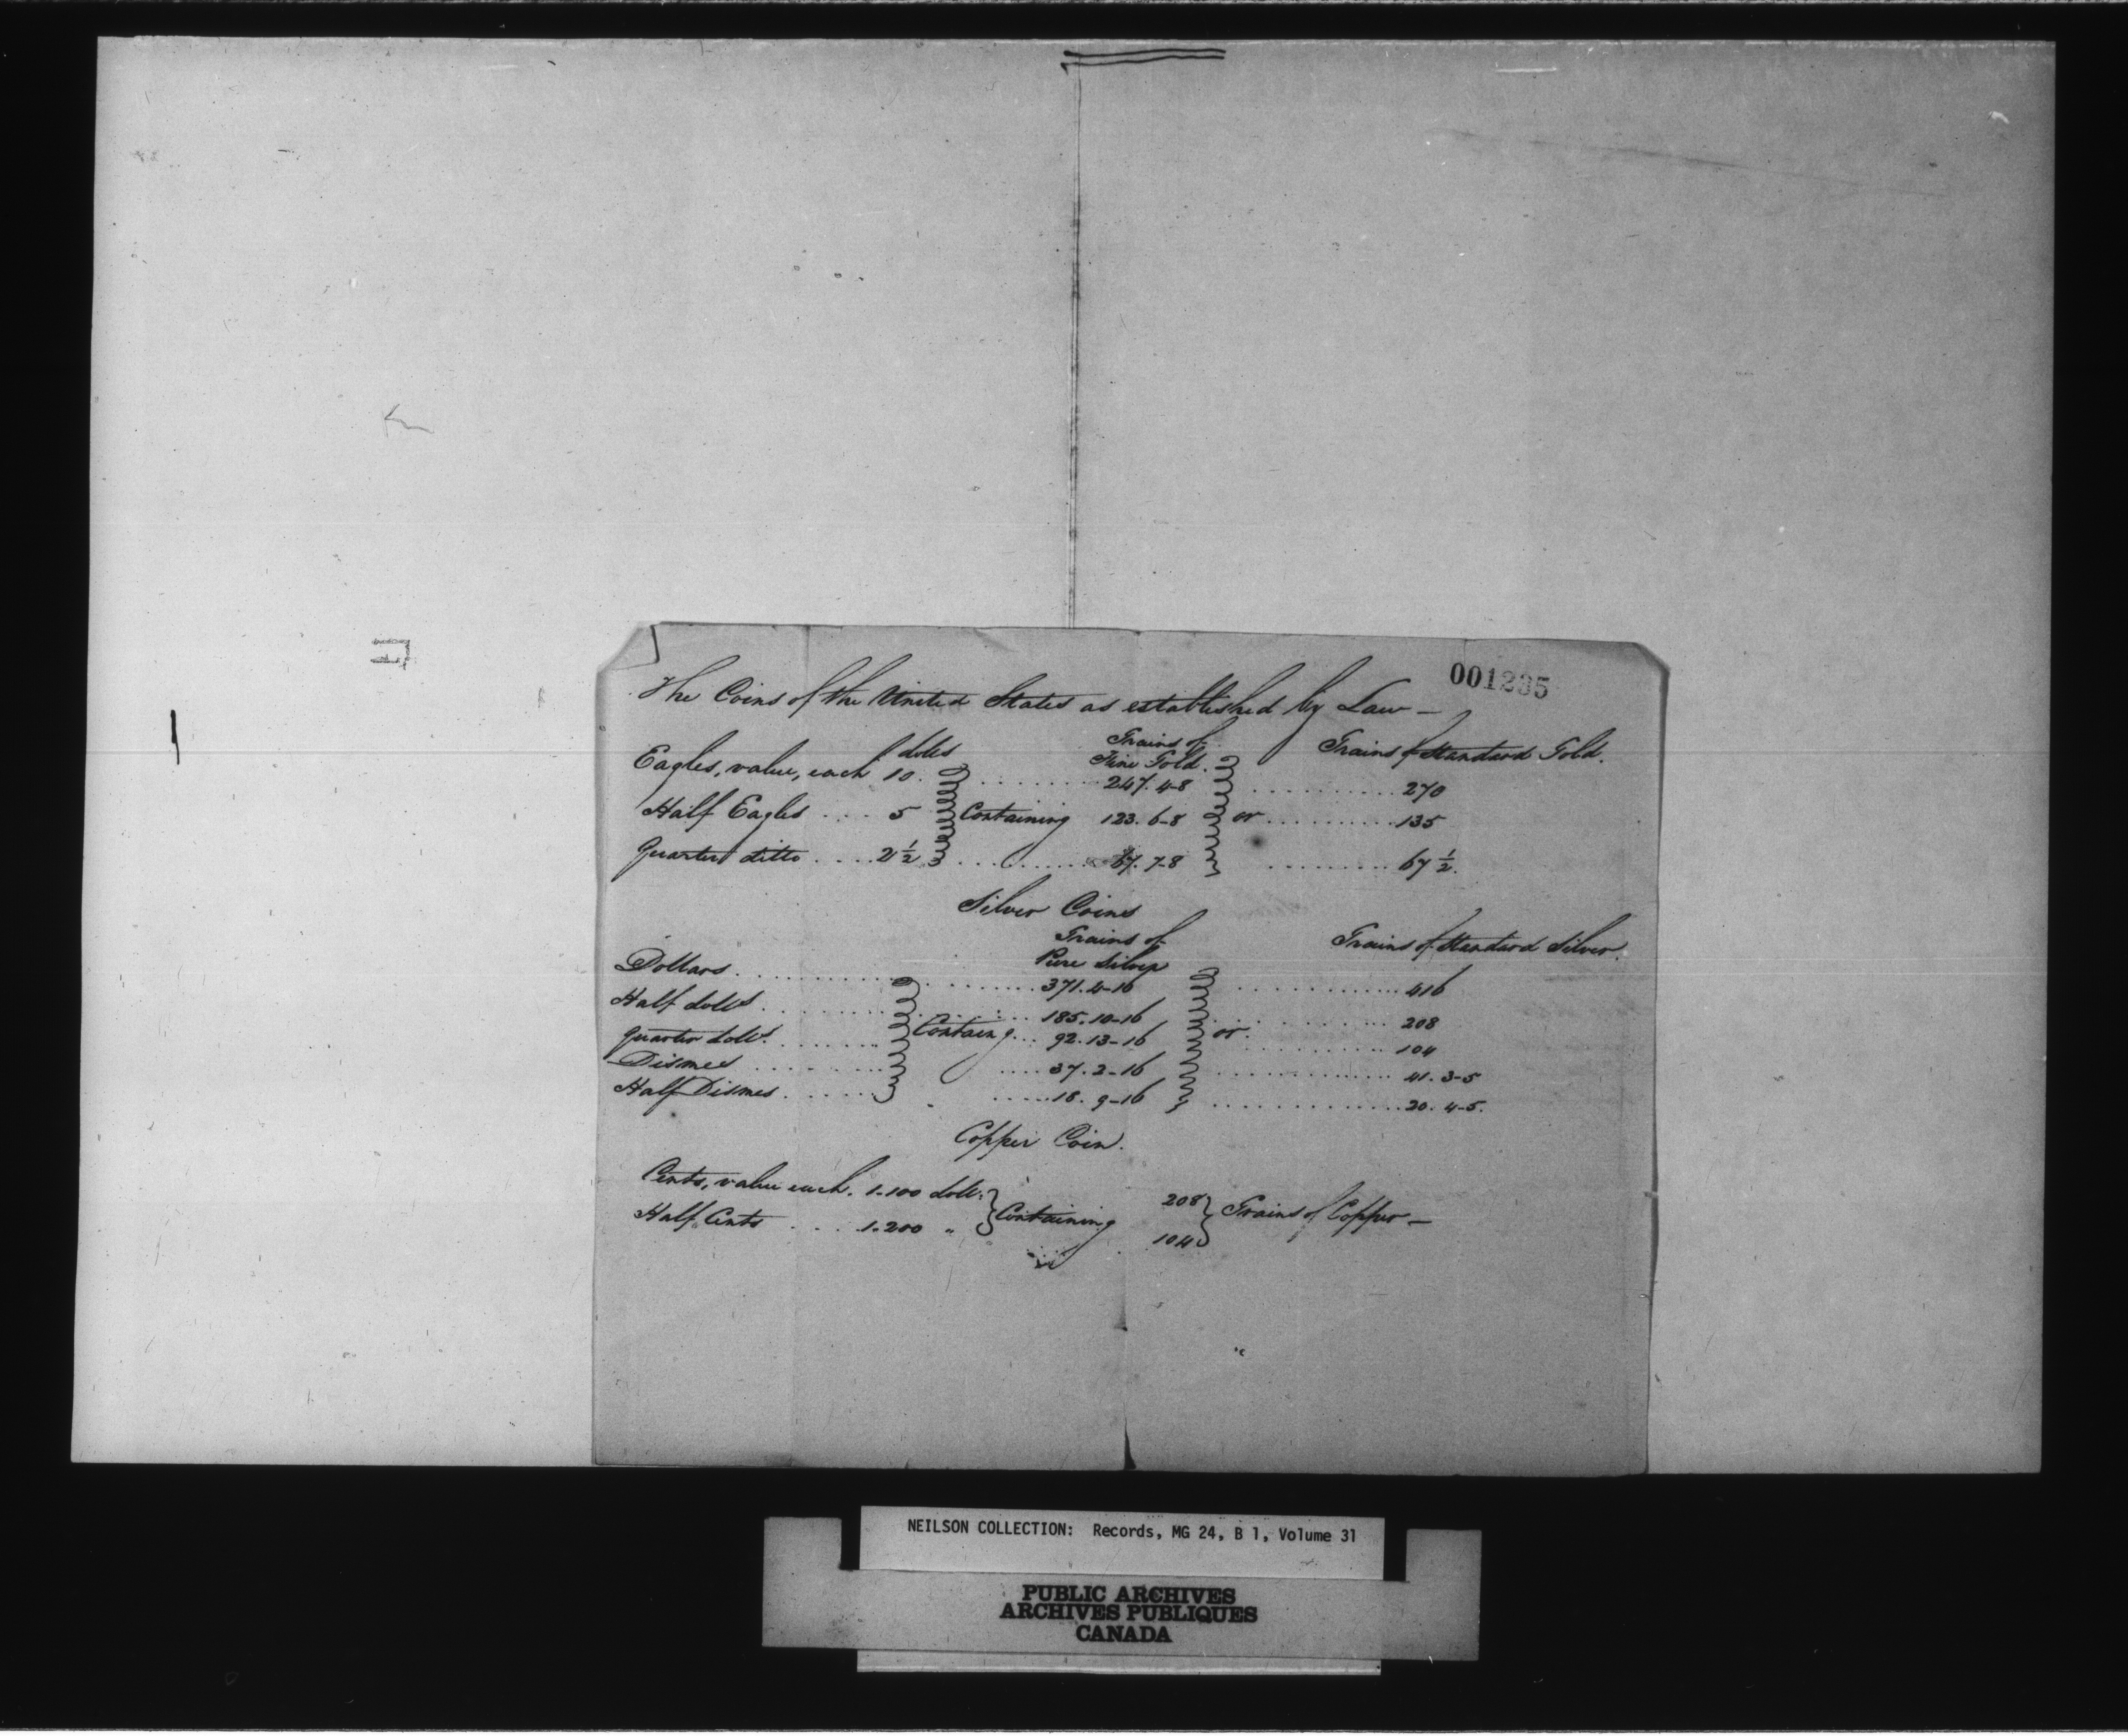 001235
The Coins of the United States as established by Law —
Eagles, value, each 10 dolls Grains of Fine Gold. 247. 4-8 Grains of Standard Gold. 270
Half Eagles .... 5 Containing 123. 6-8 or .......... 135
Quarter ditto .... 2 1/2 .......... 67. 7-8 .......... 67 1/2.
Silver Coins
Grains of Pure Silver Grains of Standard Silver.
Dollars .......... 371. 4-16 .......... 416
Half dolls .......... 185. 10-16 .......... 208
Quarter dolls. ....... Containg ... 92. 13-16 or .......... 104
Dismes .......... 37. 2-16 .......... 41. 3-5
Half Dismes ...... 18. 9-16 .......... 20. 4-5.
Copper Coin.
Cents, value each. 1-100 doll. Containing 208 Grains of Copper —
Half Cents .... 1-200 " 104
NEILSON COLLECTION: Records, MG 24, B 1, Volume 31
PUBLIC ARCHIVES
ARCHIVES PUBLIQUES
CANADA